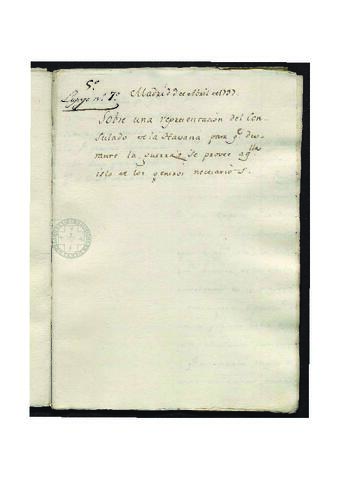 5º
Legajo nº 7º
Madrid 7 de Abril de 1797.
Sobre una representacion del Con-
sulado de la Havana para qe du-
rante la guerra se provea aqlla
isla de los generos necesarios.